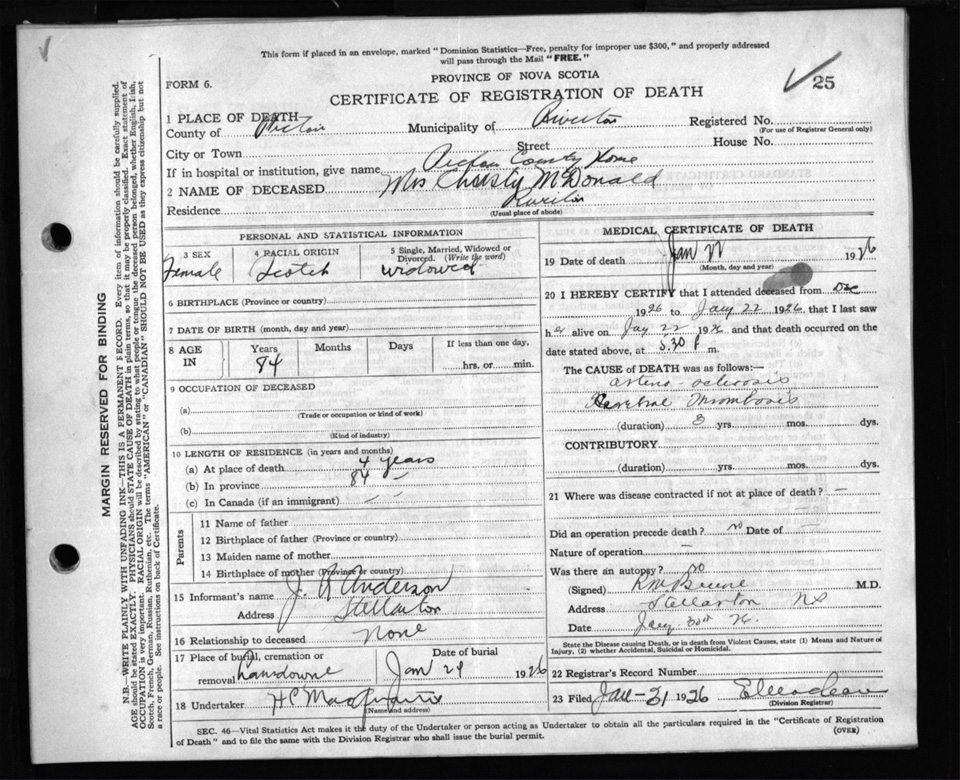 This form if placed in an envelope, marked "Dominion Statistics—Free, penalty for improper use $300," and properly addressed
will pass through the Mail "FREE."
FORM 6.
PROVINCE OF NOVA SCOTIA
25
CERTIFICATE OF REGISTRATION OF DEATH
1 PLACE OF DEATH
County of Pictou Municipality of Riverton Registered No.
(For use of Registrar General only)
Street House No.
City or Town
If in hospital or institution, give name Pictou County Home
2 NAME OF DECEASED Mrs Christy McDonald
Residence Riverton
(Usual place of abode)
PERSONAL AND STATISTICAL INFORMATION
3 SEX 4 RACIAL ORIGIN 5 Single, Married, Widowed or
Divorced. (Write the word)
Female Scotch widowed
6 BIRTHPLACE (Province or country)
7 DATE OF BIRTH (month, day and year)
8 AGE IN Years Months Days If less than one day,
84 hrs. or min.
9 OCCUPATION OF DECEASED
(a)
(Trade or occupation or kind of work)
(b)
(Kind of industry)
10 LENGTH OF RESIDENCE (in years and months)
(a) At place of death 4 years
(b) In province 84
(c) In Canada (if an immigrant)
Parents
11 Name of father
12 Birthplace of father (Province or country)
13 Maiden name of mother
14 Birthplace of mother (Province or country)
15 Informant's name J. W Anderson
Address Stellarton
16 Relationship to deceased None
17 Place of burial, cremation or Date of burial
removal Lansdowne Jan 29 1926
18 Undertaker H C
(Name and address)
MEDICAL CERTIFICATE OF DEATH
19 Date of death Jan 22 1926
(Month, day and year)
20 I HEREBY CERTIFY that I attended deceased from Dec
1926 to Jany 22 1926, that I last saw
her alive on Jany 22 1926 and that death occurred on the
date stated above, at 5.30 P m.
The CAUSE OF DEATH was as follows:—
arterio-sclerosis
Cerebral Thrombosis
(duration) 3 yrs. mos. dys.
CONTRIBUTORY
(duration) yrs. mos. dys.
21 Where was disease contracted if not at place of death? —
Did an operation precede death? no Date of —
Nature of operation —
Was there an autopsy? no
(Signed) M.D.
Address Stellarton NS
Date Jany 30th 26.
State the Disease causing Death, or in death from Violent Causes, state (1) Means and Nature of
Injury, (2) whether Accidental, Suicidal or Homicidal.
22 Registrar's Record Number
23 Filed Jan-31 1926
(Division Registrar)
SEC. 46—Vital Statistics Act makes it the duty of the Undertaker or person acting as Undertaker to obtain all the particulars required in the "Certificate of Registration
of Death" and to file the same with the Division Registrar who shall issue the burial permit.
(OVER)
MARGIN RESERVED FOR BINDING
N.B.—WRITE PLAINLY WITH UNFADING INK—THIS IS A PERMANENT RECORD. Every item of information should be carefully supplied.
AGE should be stated EXACTLY. PHYSICIANS should STATE CAUSE OF DEATH in plain terms, so that it may be properly classified. Exact statement of
OCCUPATION is very important. RACIAL ORIGIN will be described by stating to what people or tongue the deceased person belonged, whether English, Irish,
Scotch, French, German, Russian, Ruthenian, etc. The terms "AMERICAN" or "CANADIAN" SHOULD NOT BE USED as they express citizenship but not
a race or people. See instructions on back of Certificate.